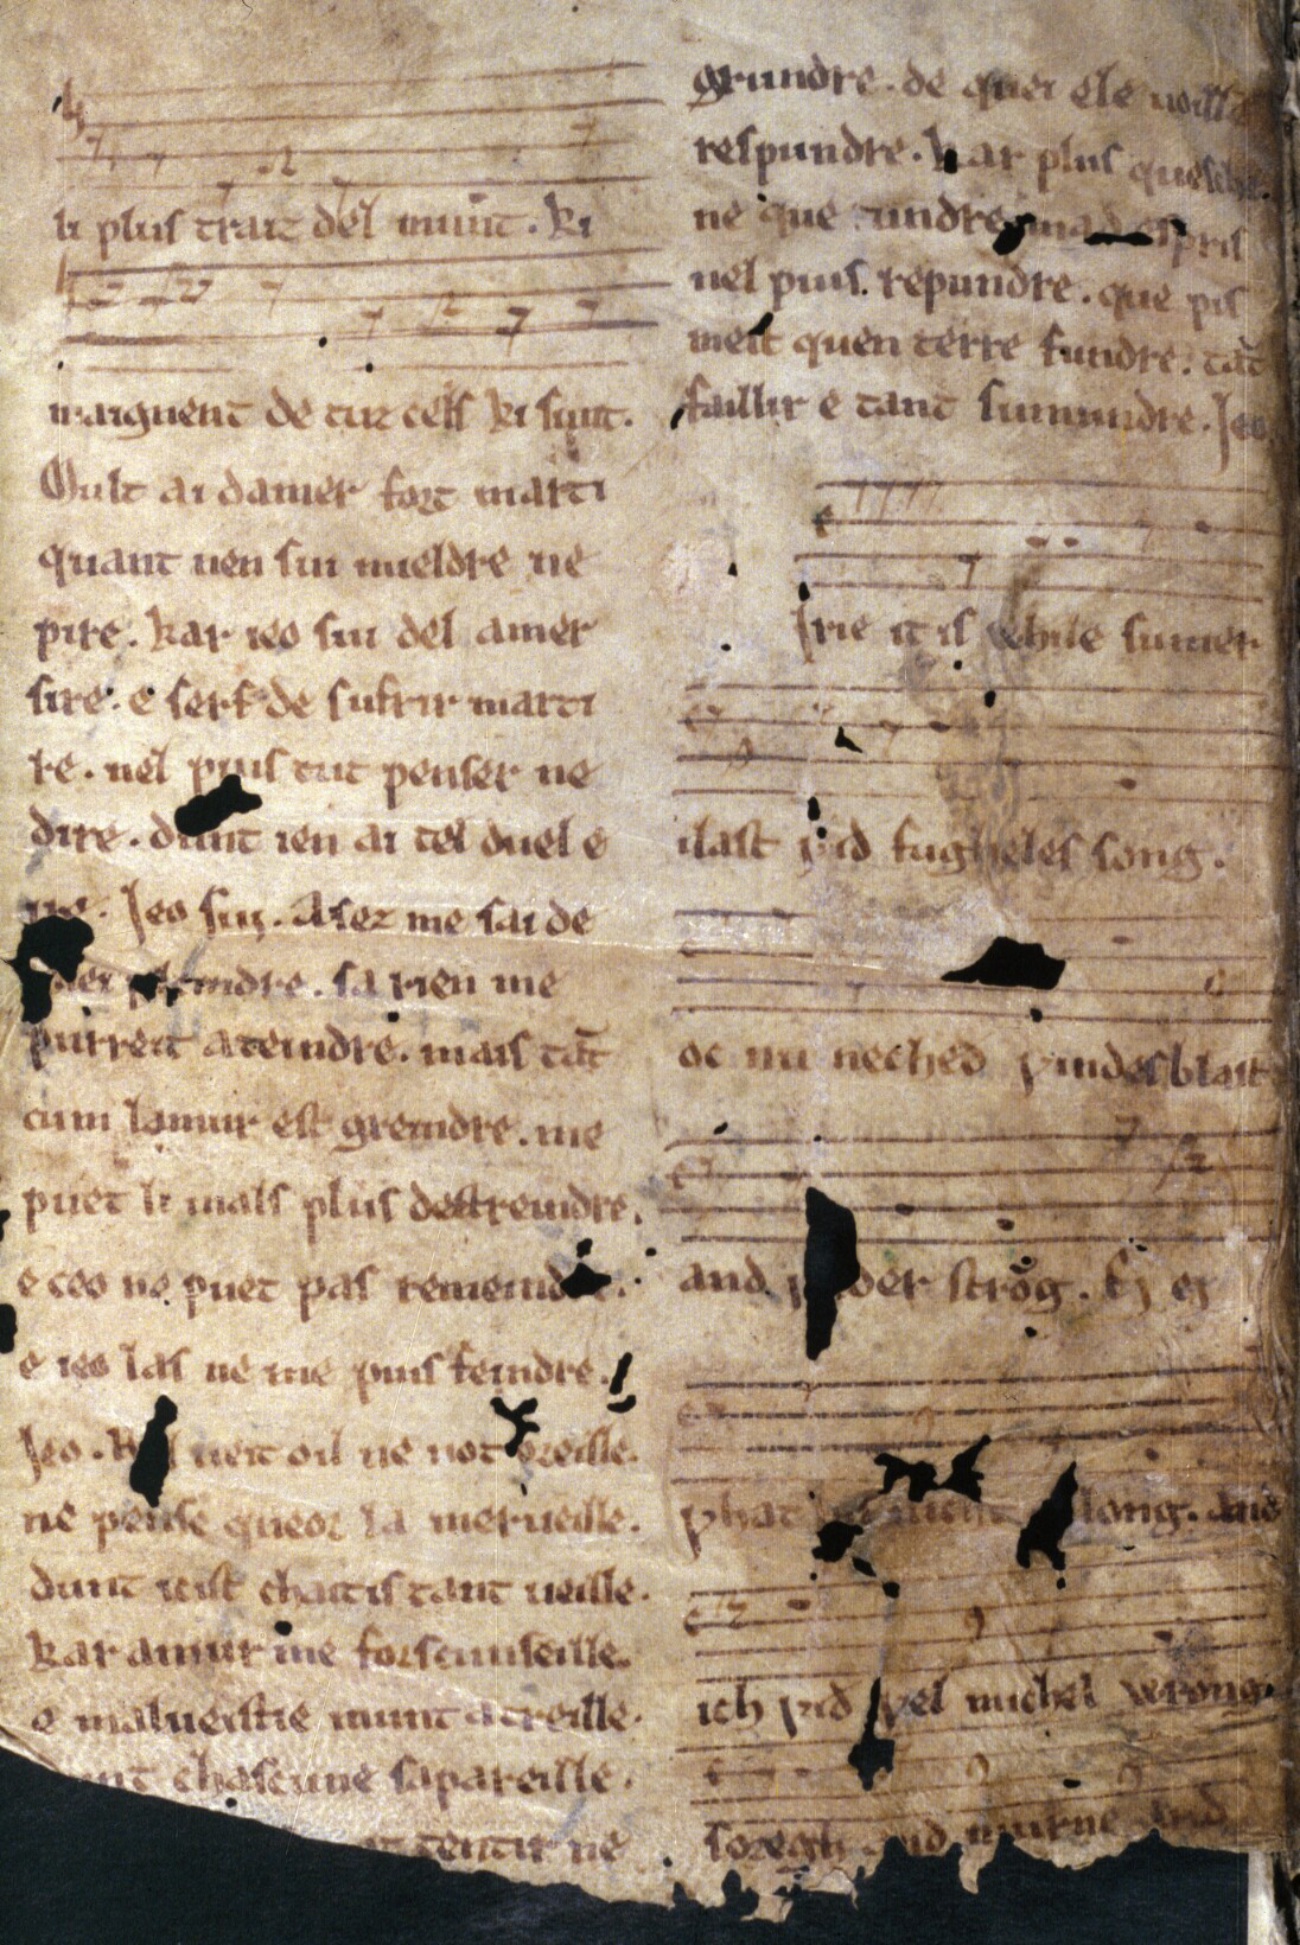 li plus trait del munt. ki
maiguent de tuz cels ki sunt.
Mult ai damer fort marti
quant uen sui mieldre ne
pire. kar ieo sui del amer
sire. e serf de sufrir marti
re. nel puis tut penser ne
dire. dunt ien ai tel duel e
Jeo sui. Asez me sai de
plaindre. sa rien me
purreit ateindre. mais tāt
cum lamur est greindre. me
puet li mals plus destreindre.
e ceo ne puet pas remeindre.
e ieo las ne me puis feindre.
Jeo. ueit oil ne not oreille.
ne pense queor la merueille.
dunt icist chaitis tant ueille.
kar amur me forscunseille.
e malueistie munt a treille.
chascune sapareille.
tentir ne
grundre. de quei ele uoille
respundre. kar plus
ne que tundre
nel puis repundre. que pis
meit quen terre fundre. tāt
faillir e tant sumundre. Jeo
Irie it is ƿhile sumer
ilast ƿid fugheles song.
oc nu neched ƿindes blast
and ƿ der strōg. Ej ej
ƿhat long. and
ich ƿid ƿel michel wrong.
soregh and murne and